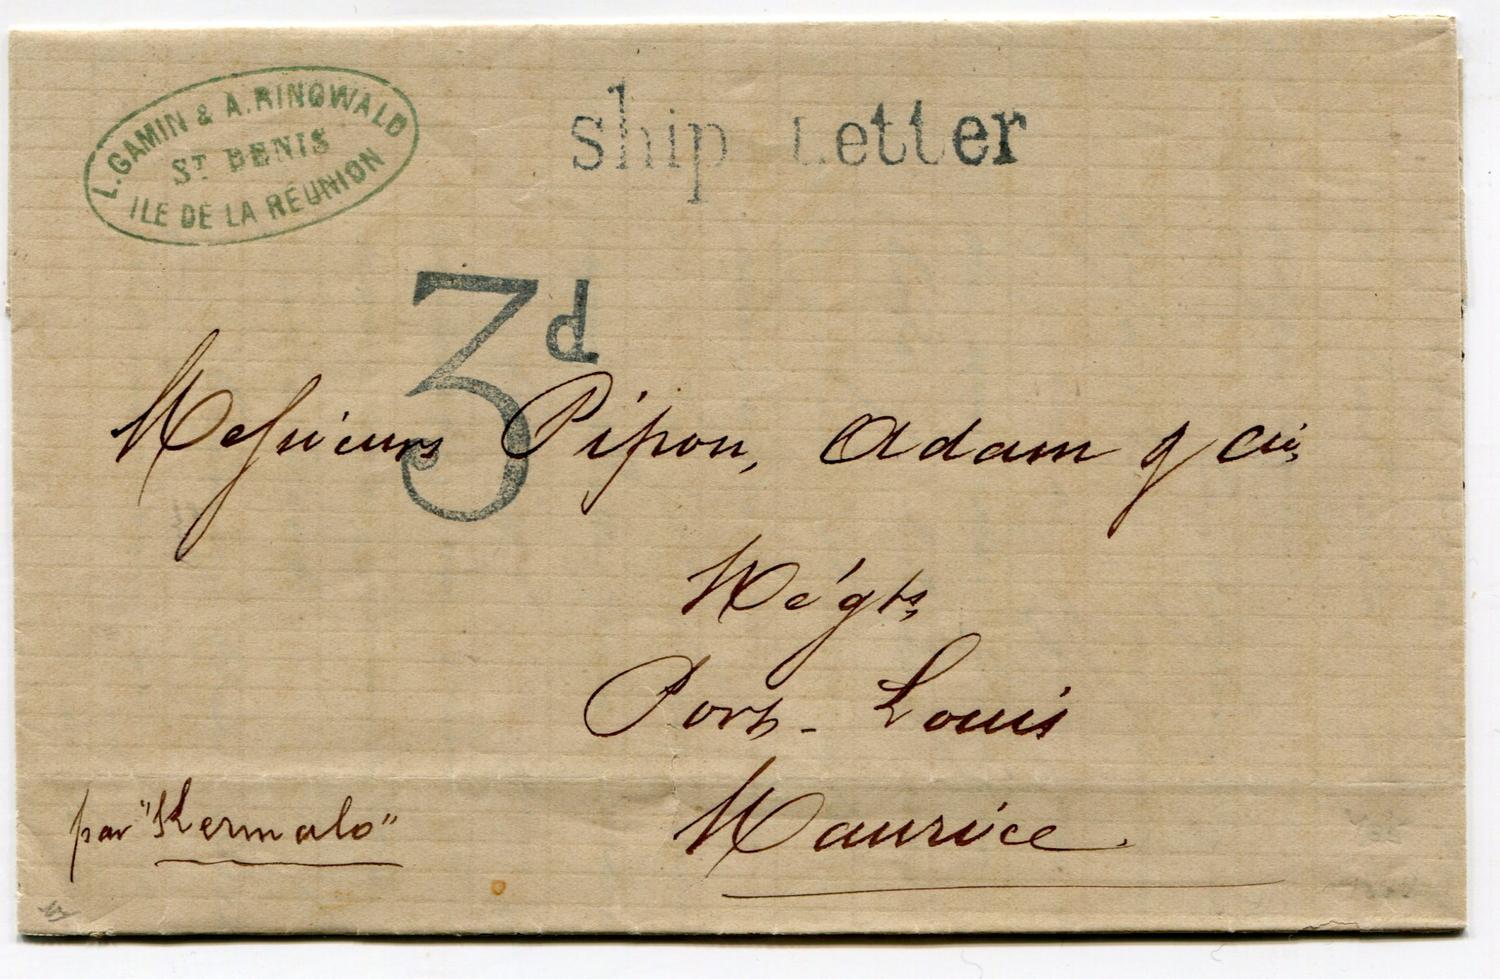 L. GAMIN & A. RINGWALD
ST DENIS
ILE DE LA RÉUNION
ship Letter
3d
Messieurs Pipon, Adam & Cie,
Négts,
Port-Louis
Maurice.
par "Kermalo"